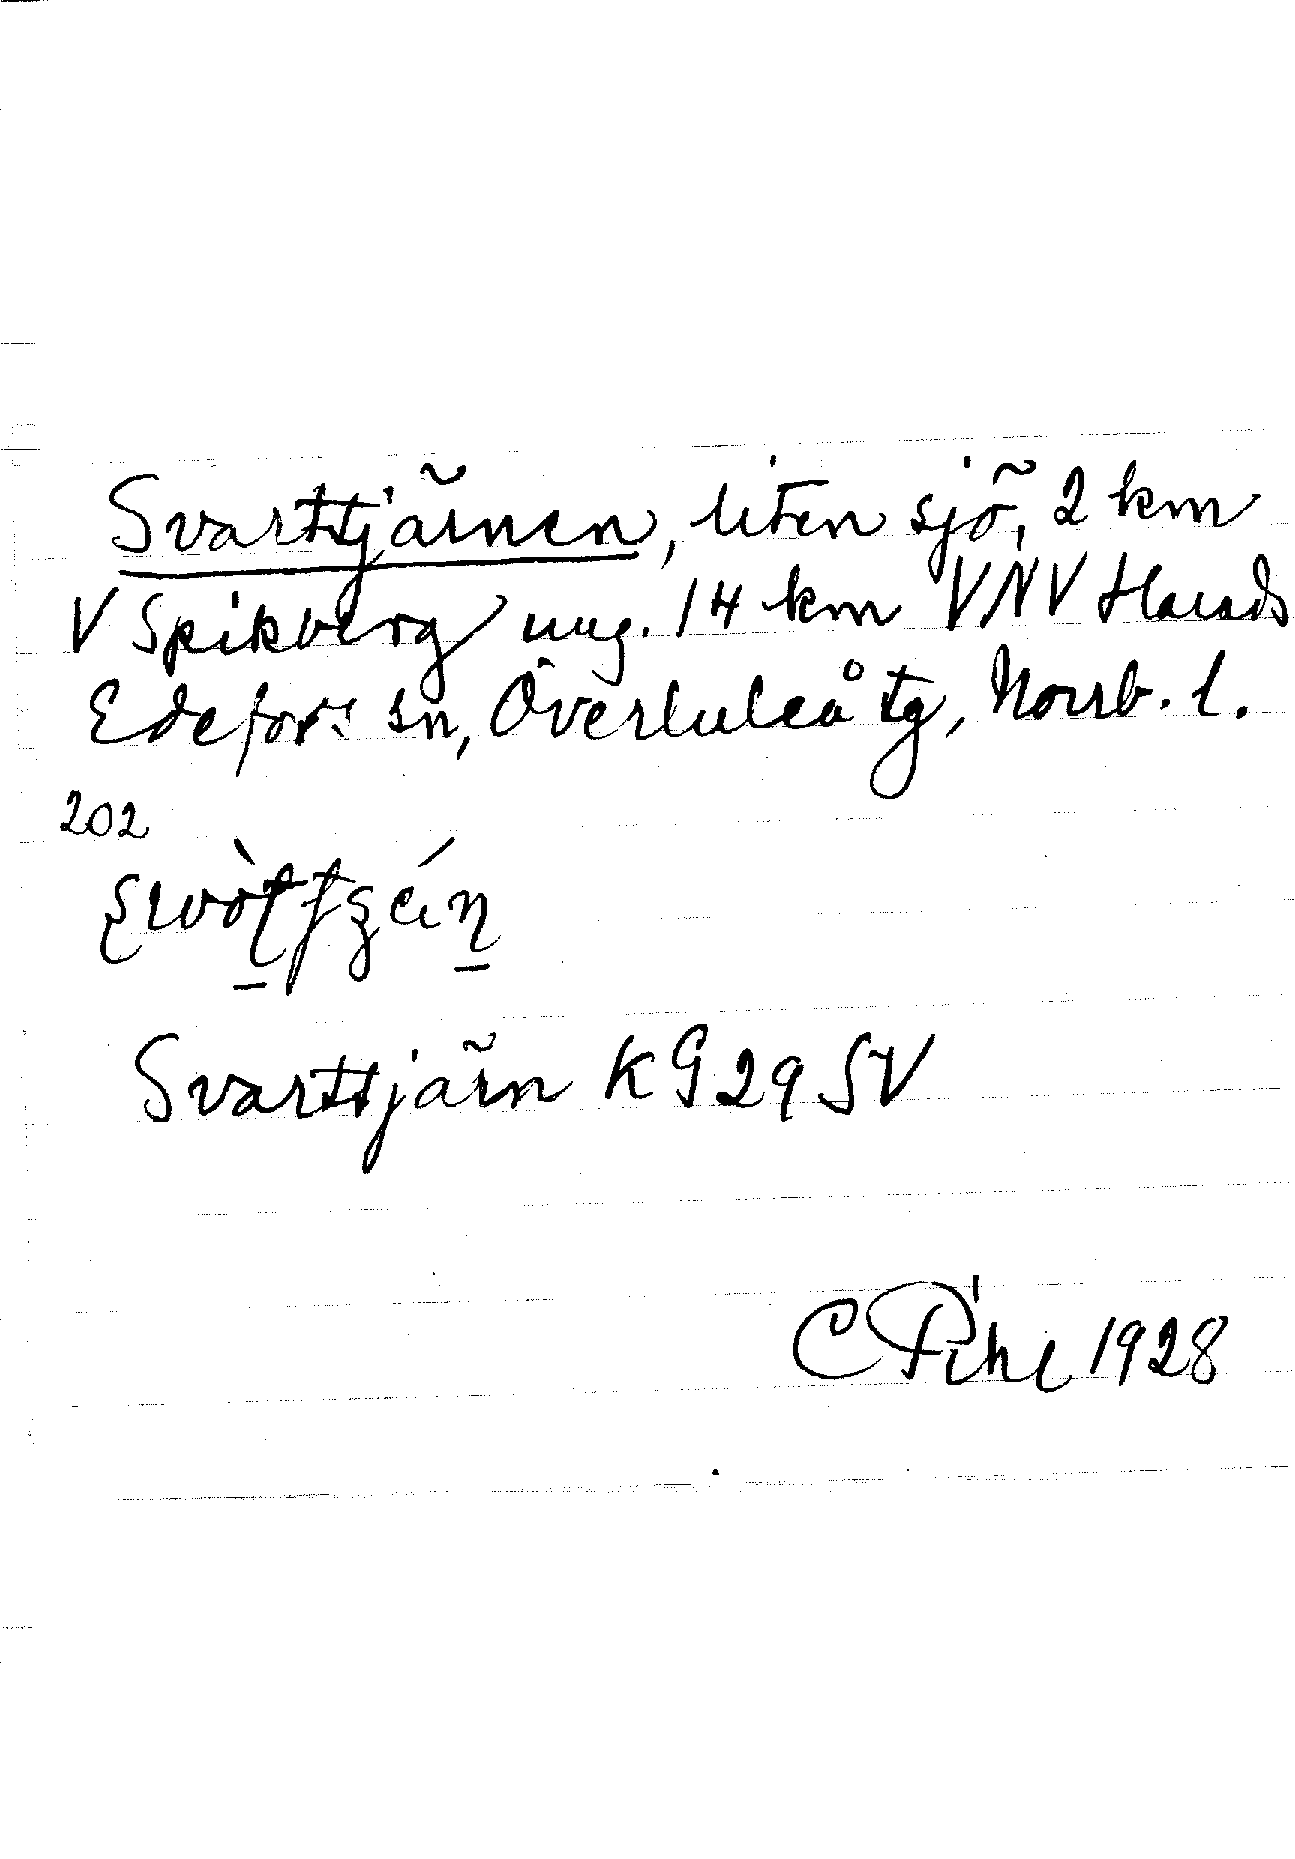 Svarttjärnen, liten sjö, 2 km
V Spikberg ung. 14 km VNV Harads
Edefors sn, Överluleå tg, Norrb. l.
202
Svarttjärn KG 29 SV
C Pihl 1928